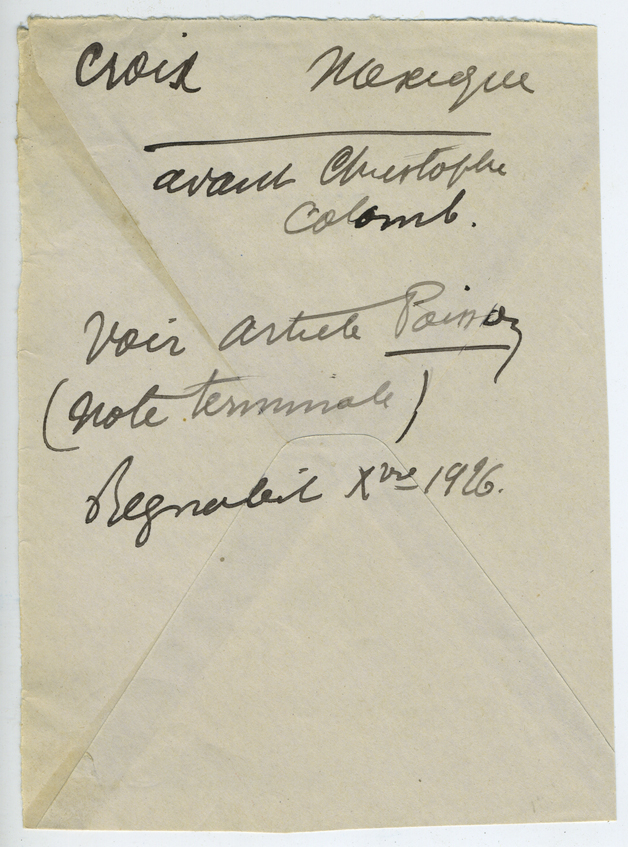 Croix Mexique
avant Christophe
Colomb.
Voir article Poisson
(Note terminale)
Regnabit Xbre 1926.